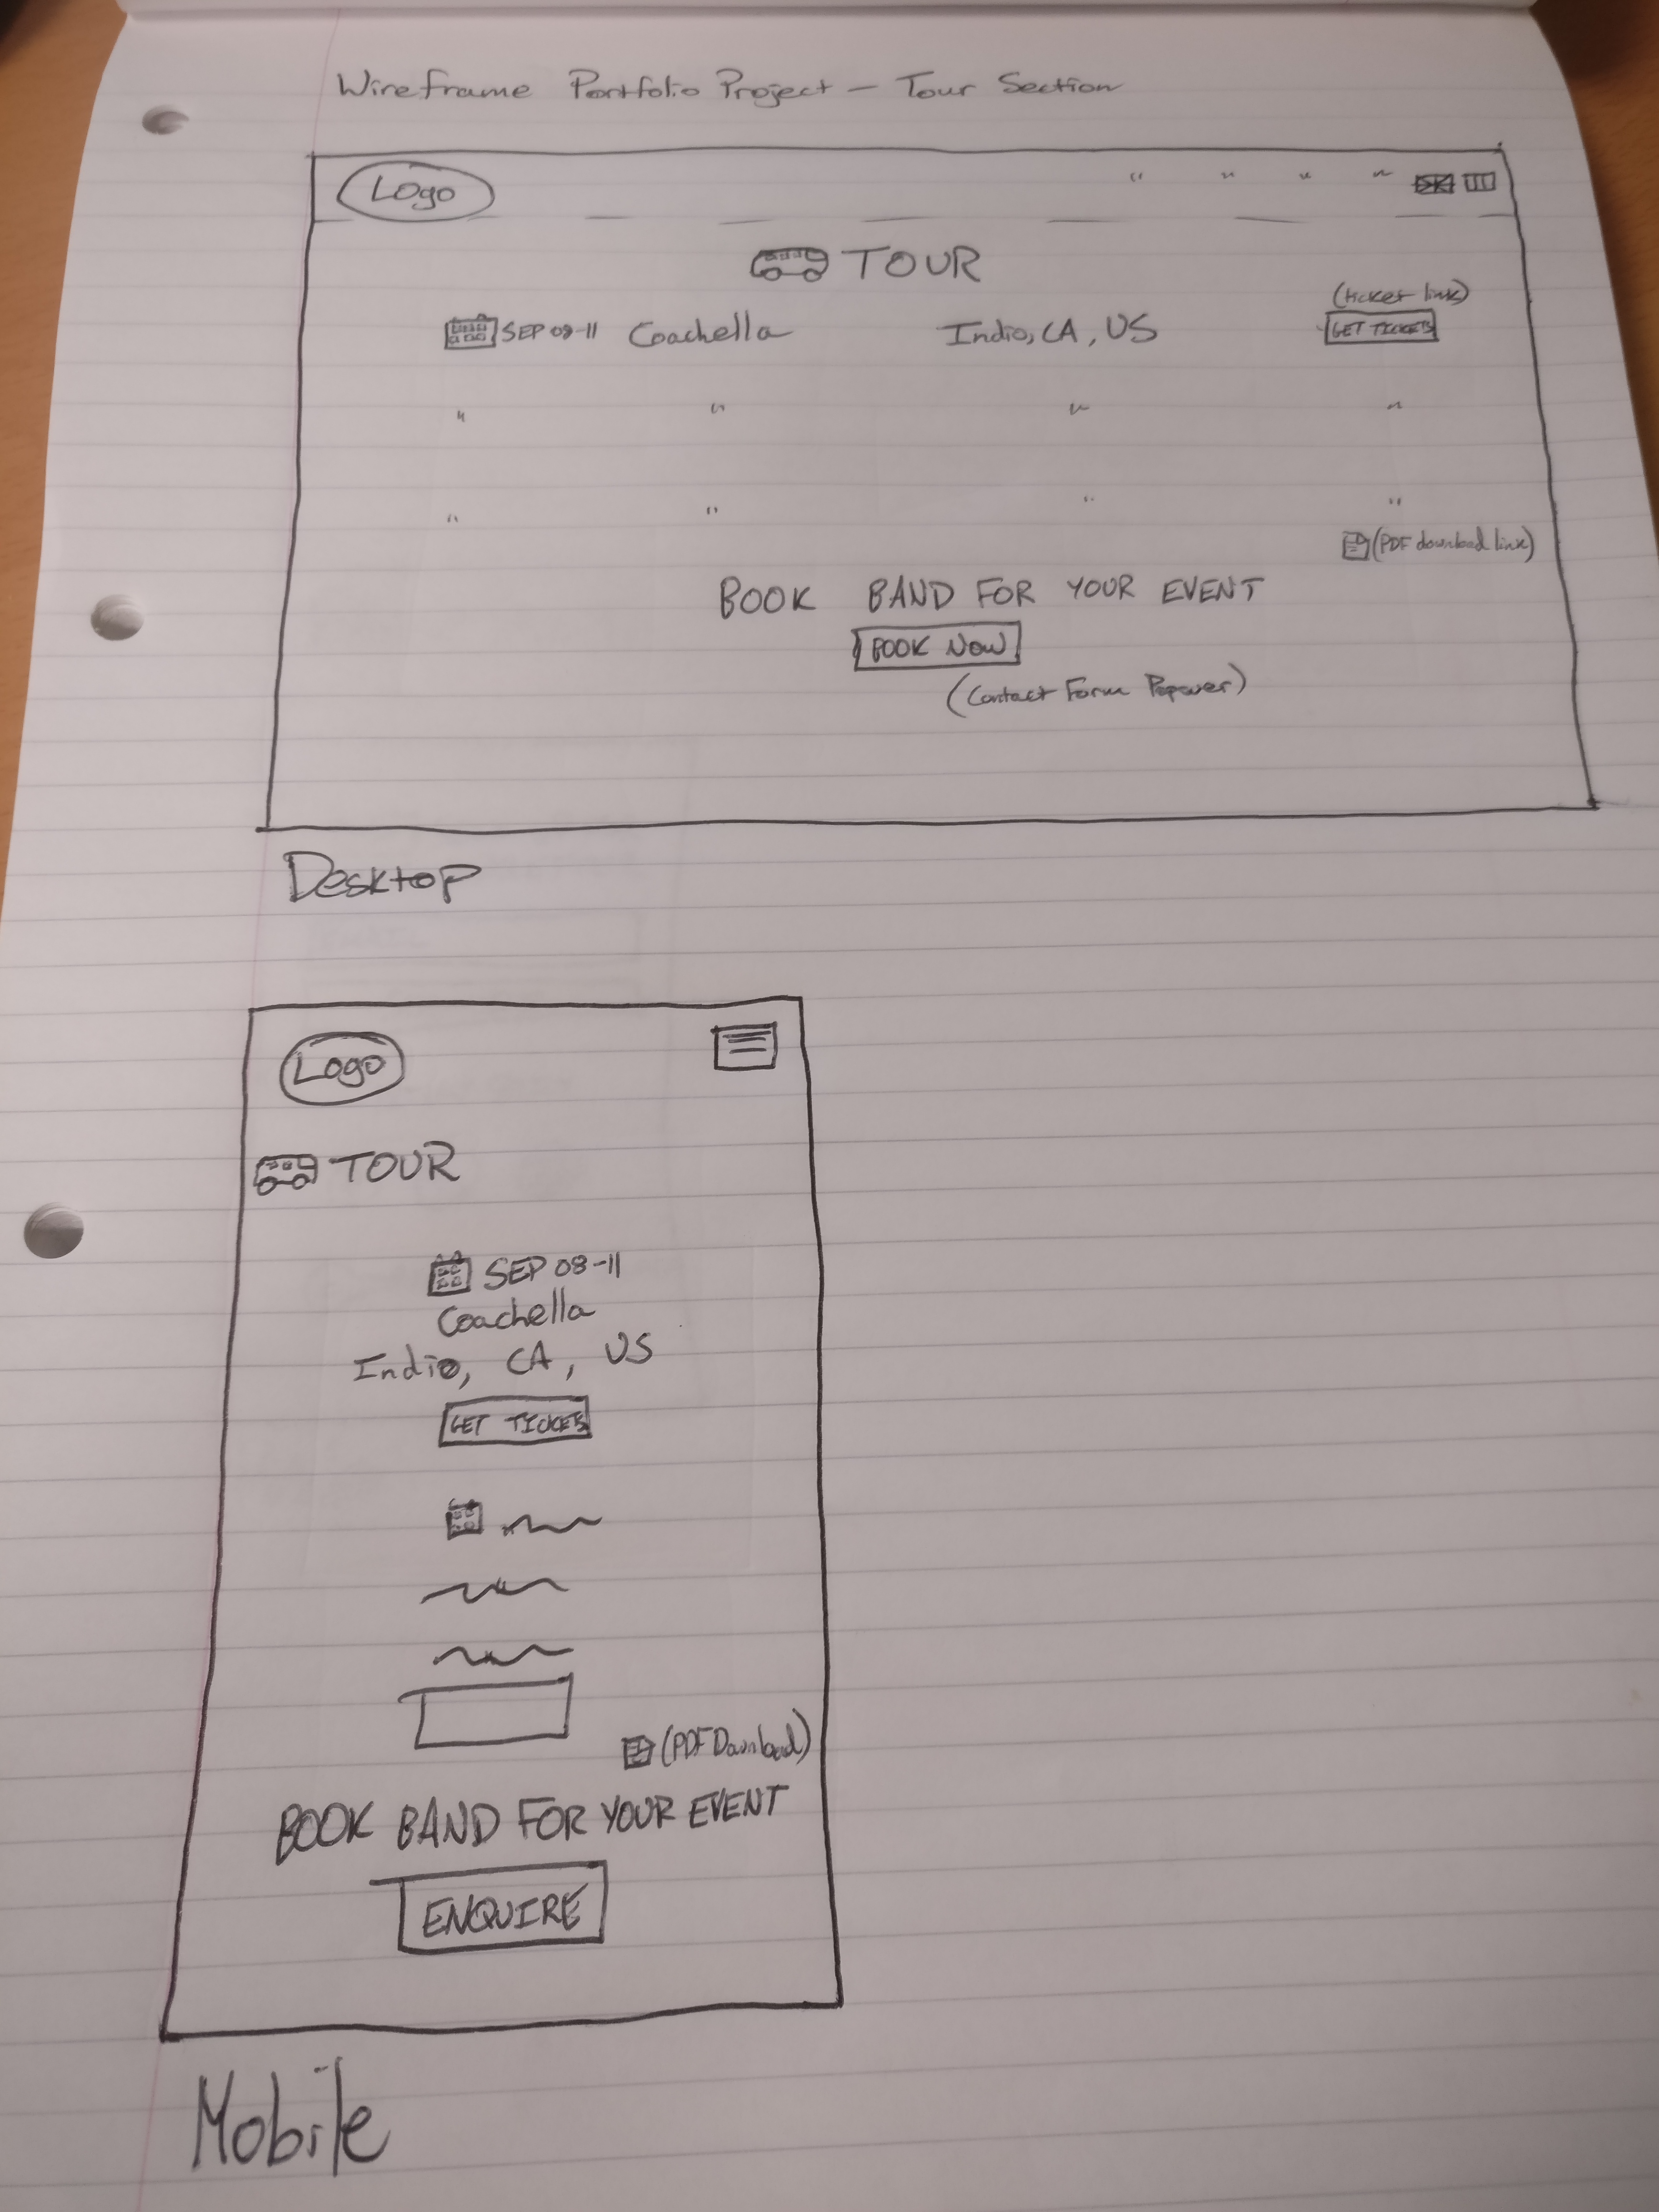 Wireframe Portfolio Project - Tour Section
Logo " " " "
TOUR
(ticket link)
SEP 08-11 Coachella Indio, CA, US GET TICKETS
" " " "
" " " "
(PDF download link)
BOOK BAND FOR YOUR EVENT
BOOK NOW
(Contact Form Popover)
Desktop
Logo
TOUR
SEP 08-11
Coachella
Indio, CA, US
GET TICKETS
(PDF Download)
BOOK BAND FOR YOUR EVENT
ENQUIRE
Mobile